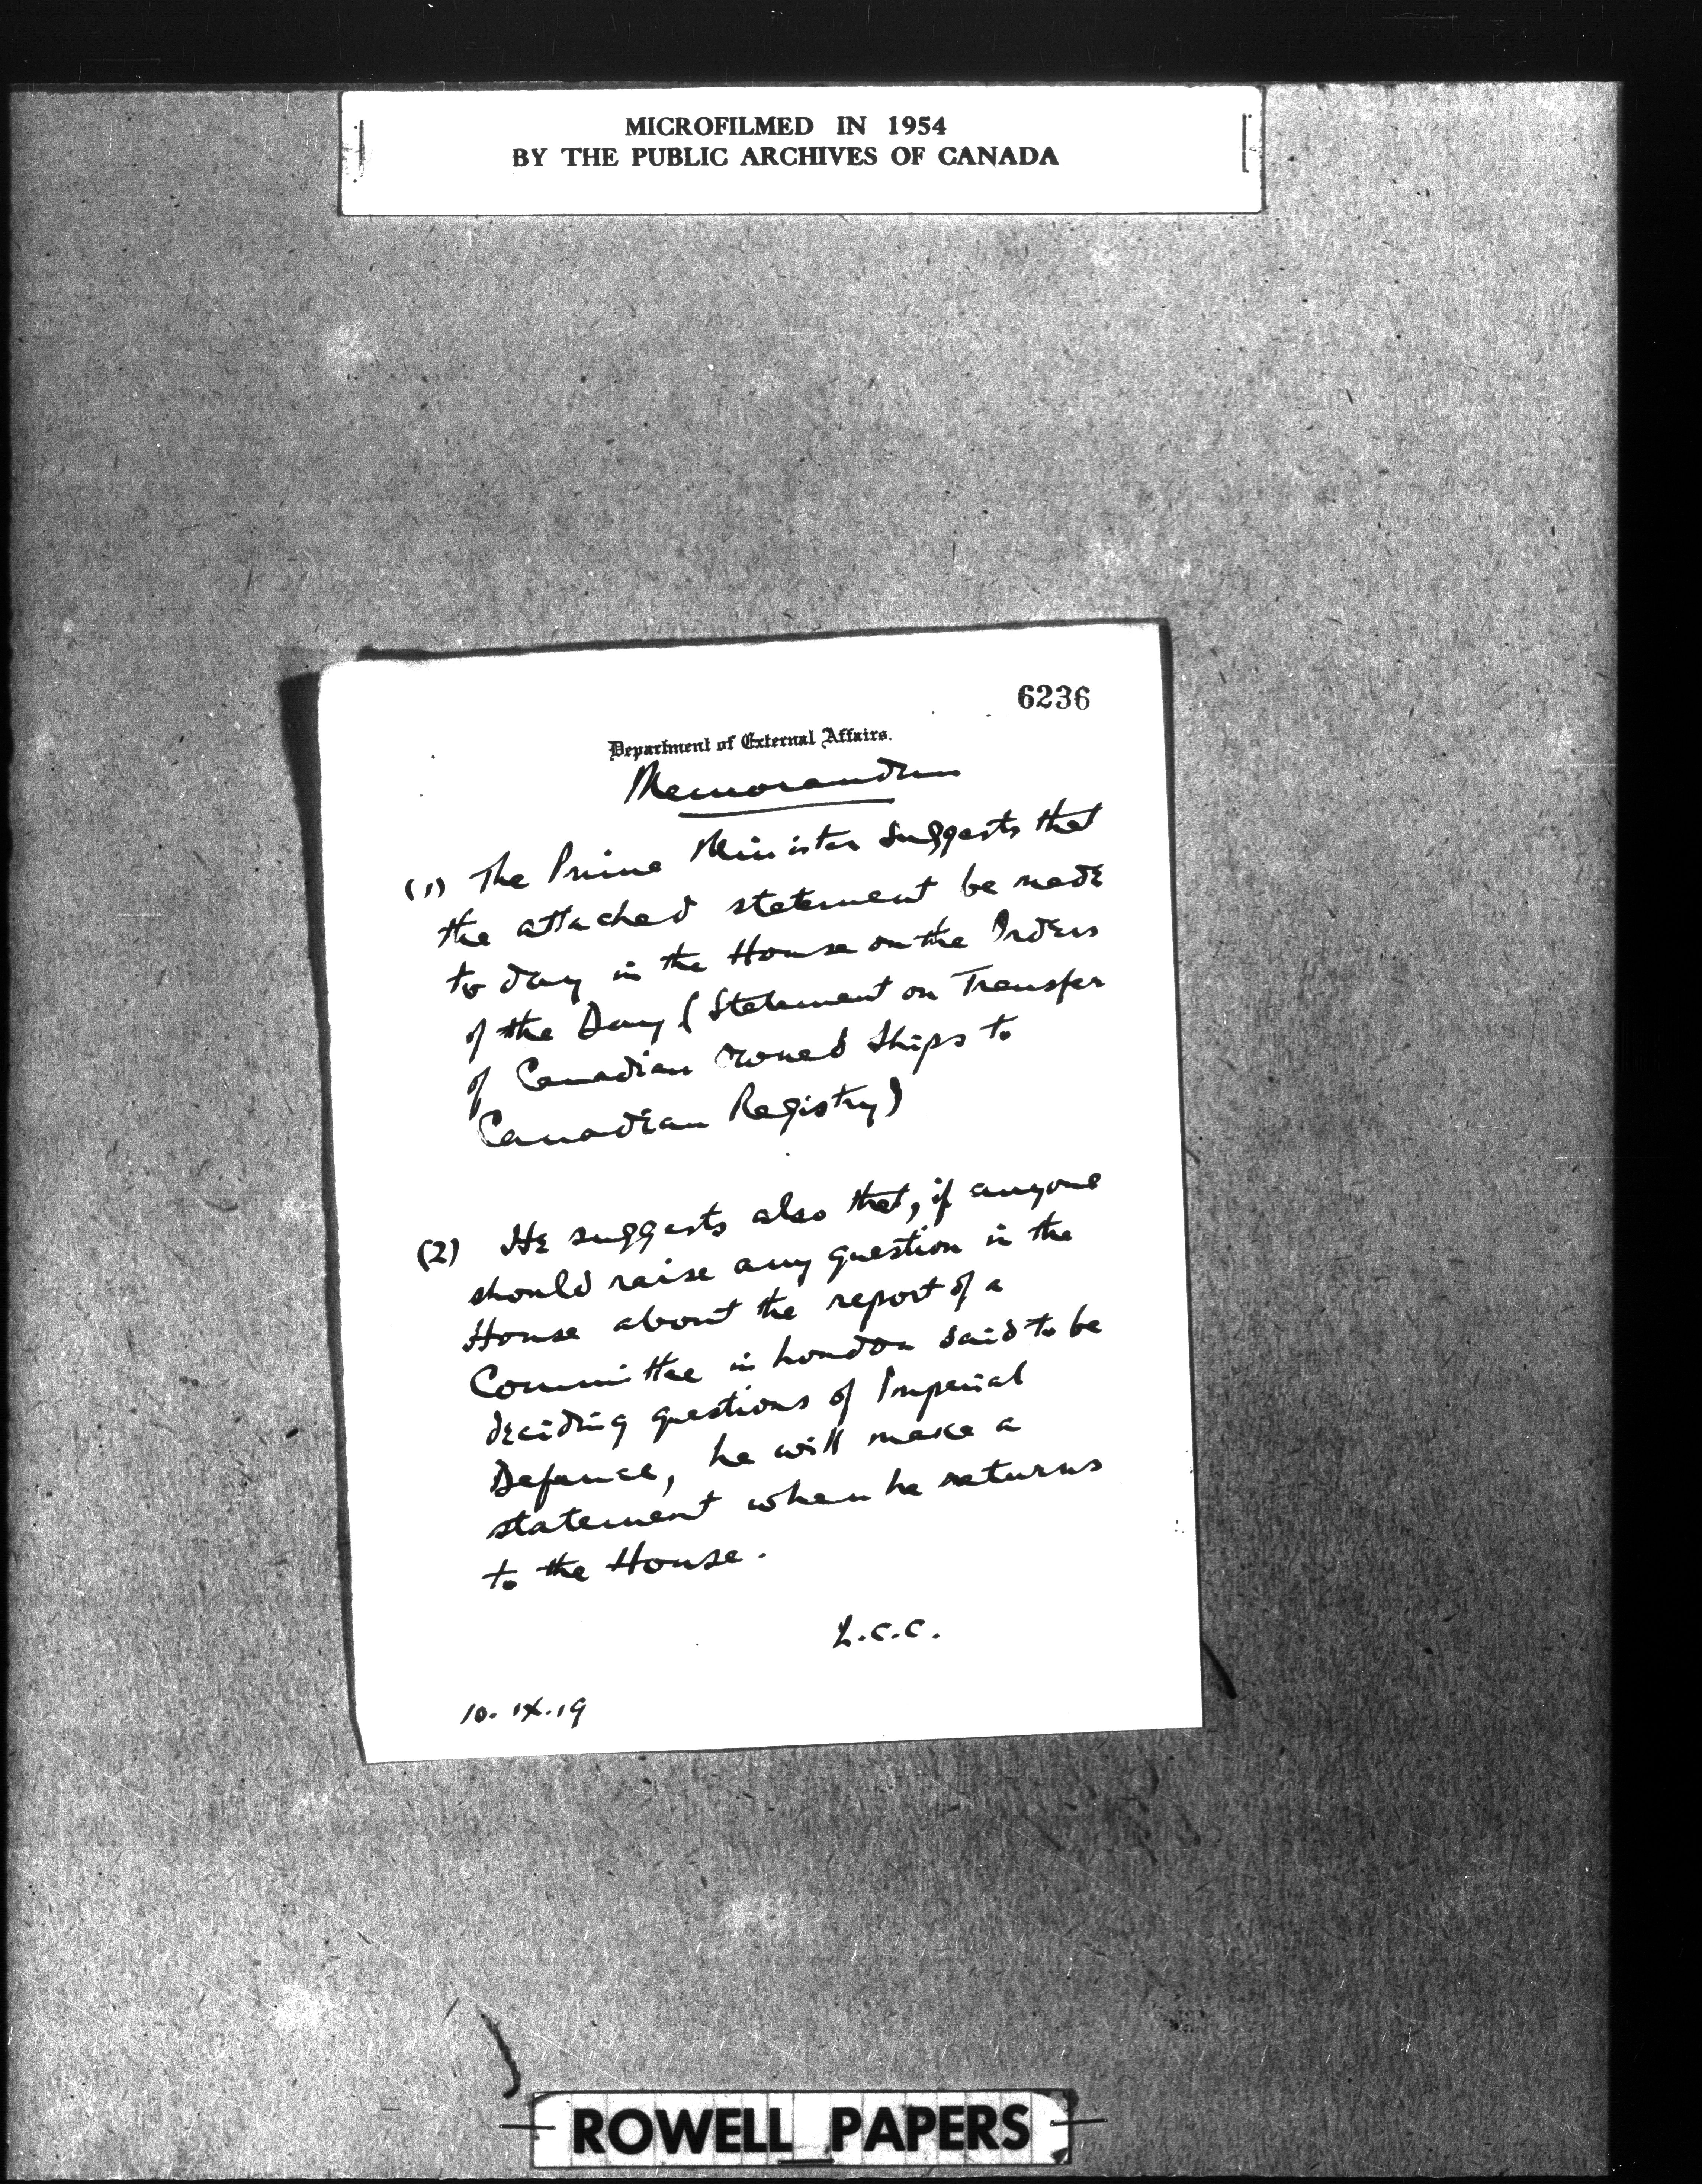 MICROFILMED IN 1954
BY THE PUBLIC ARCHIVES OF CANADA
6236
Department of External Affairs.
Memorandum
(1) The Prime Minister suggests that
the attached statement be made
to day in the House on the Orders
of the Day (Statement on Transfer
of Canadian owned ships to
Canadian Registry)
(2) He suggests also that, if anyone
should raise any question in the
House about the report of a
Committee in London said to be
deciding questions of Imperial
Defence, he will make a
statement when he returns
to the House.
L.C.C.
10.IX.19
ROWELL PAPERS